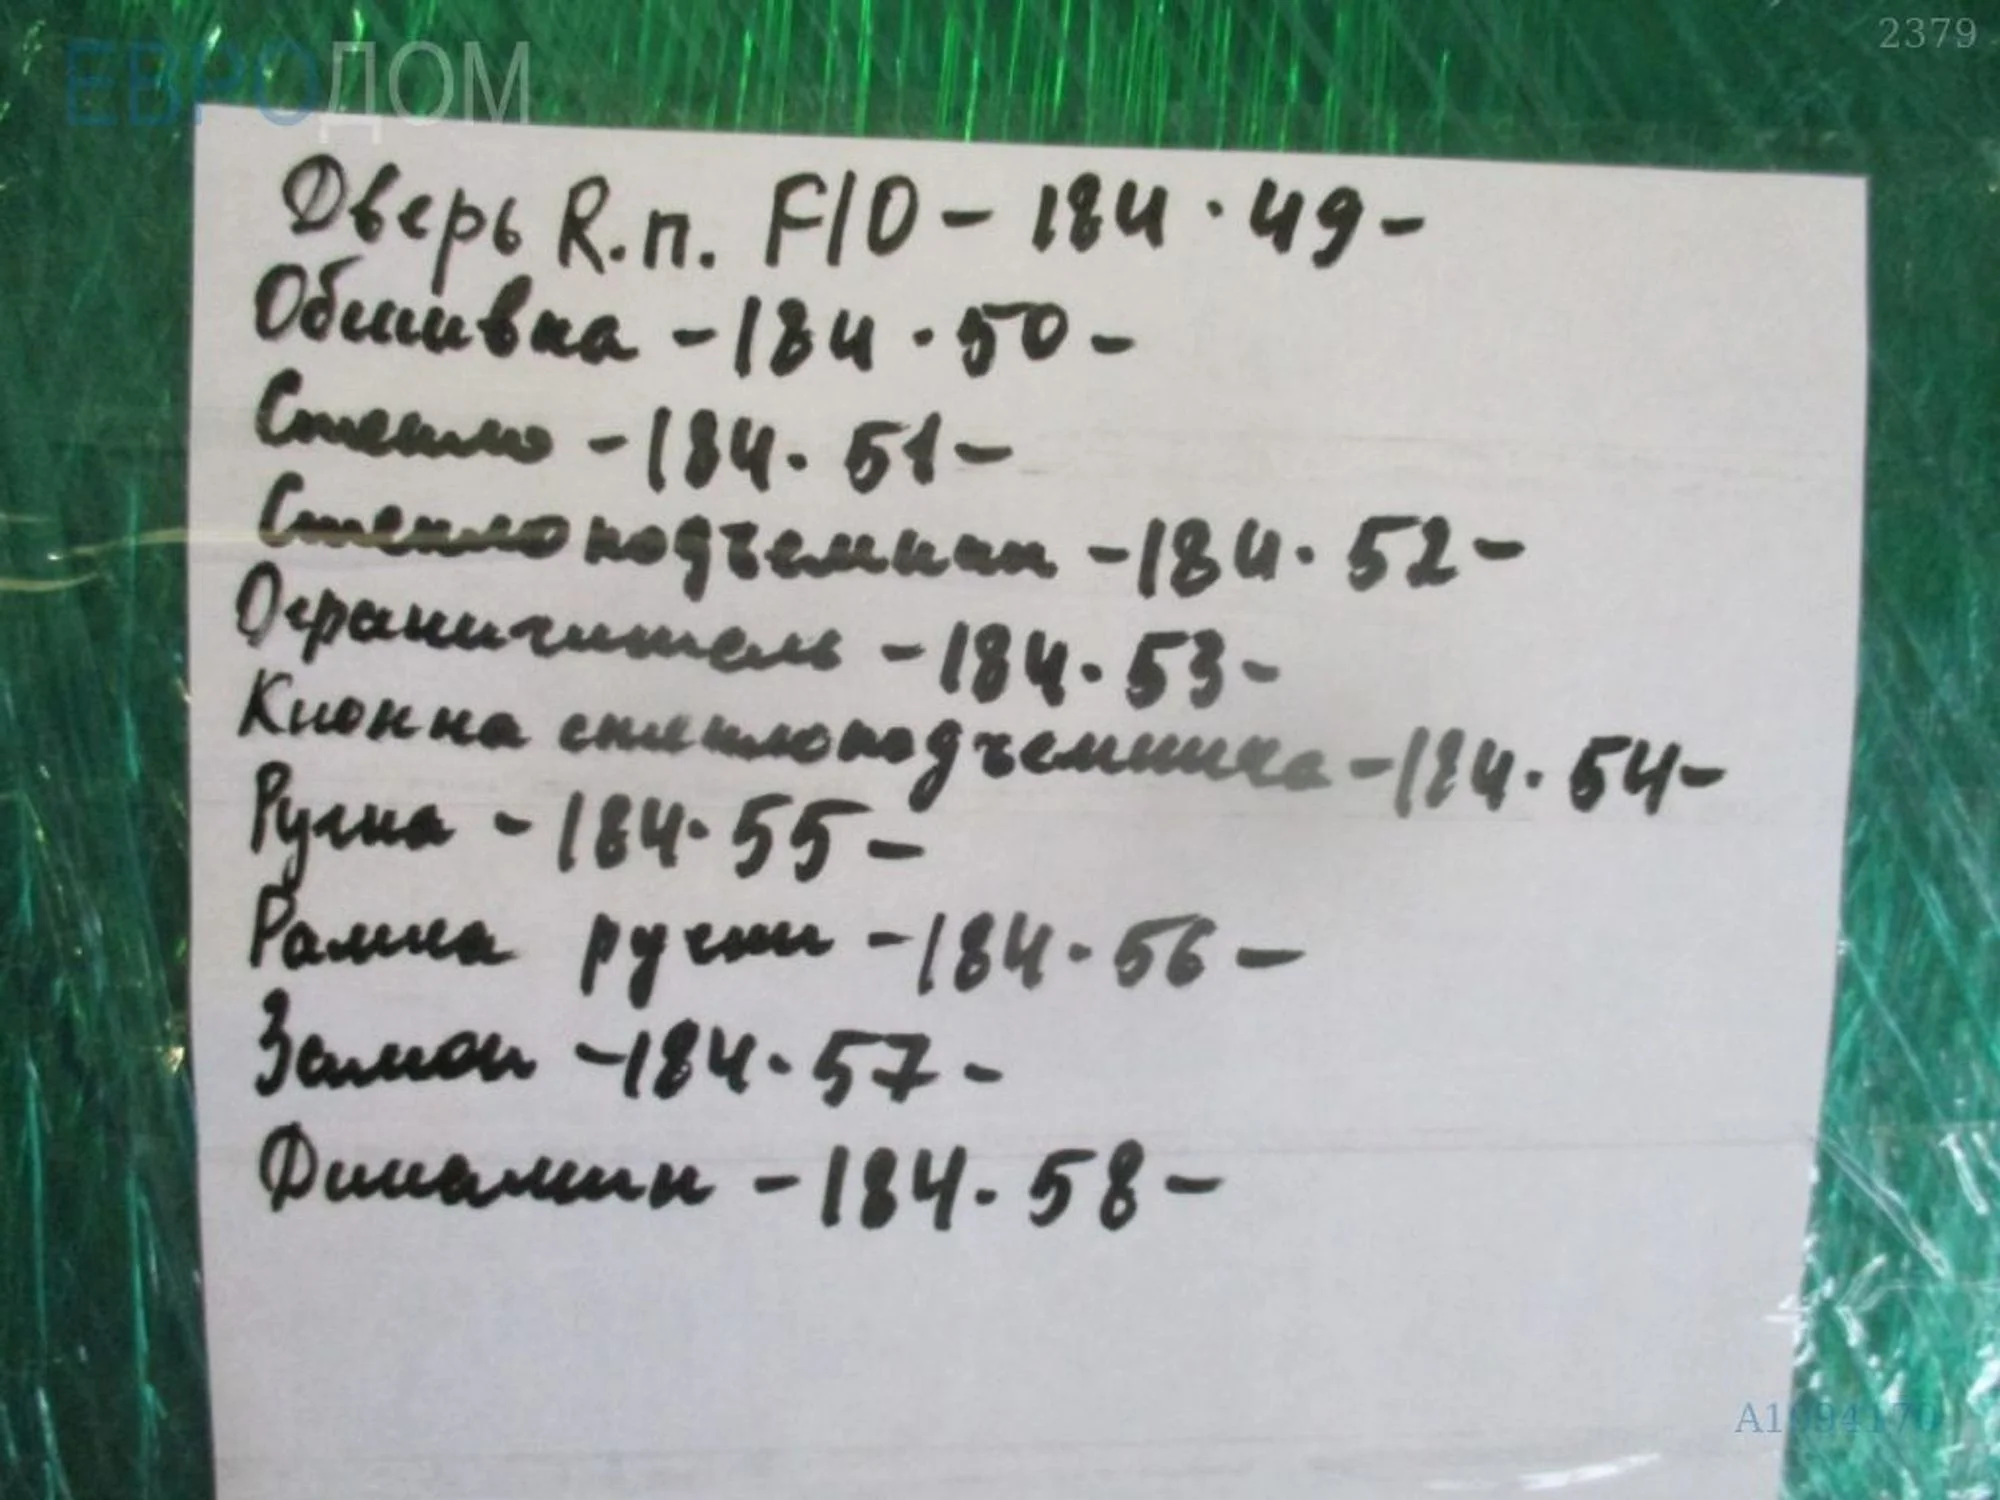 ЕВРОДОМ
2379
Дверь R.п. F/O - 184 · 49 -
Обшивка - 184 · 50 -
Стекло - 184 · 51 -
Стеклоподъемник - 184 · 52 -
Ограничитель - 184 · 53 -
Кнопка стеклоподъемника - 184 · 54 -
Ручка - 184 · 55 -
Рамка ручки - 184 · 56 -
Замок - 184 · 57 -
Динамик - 184 · 58 -